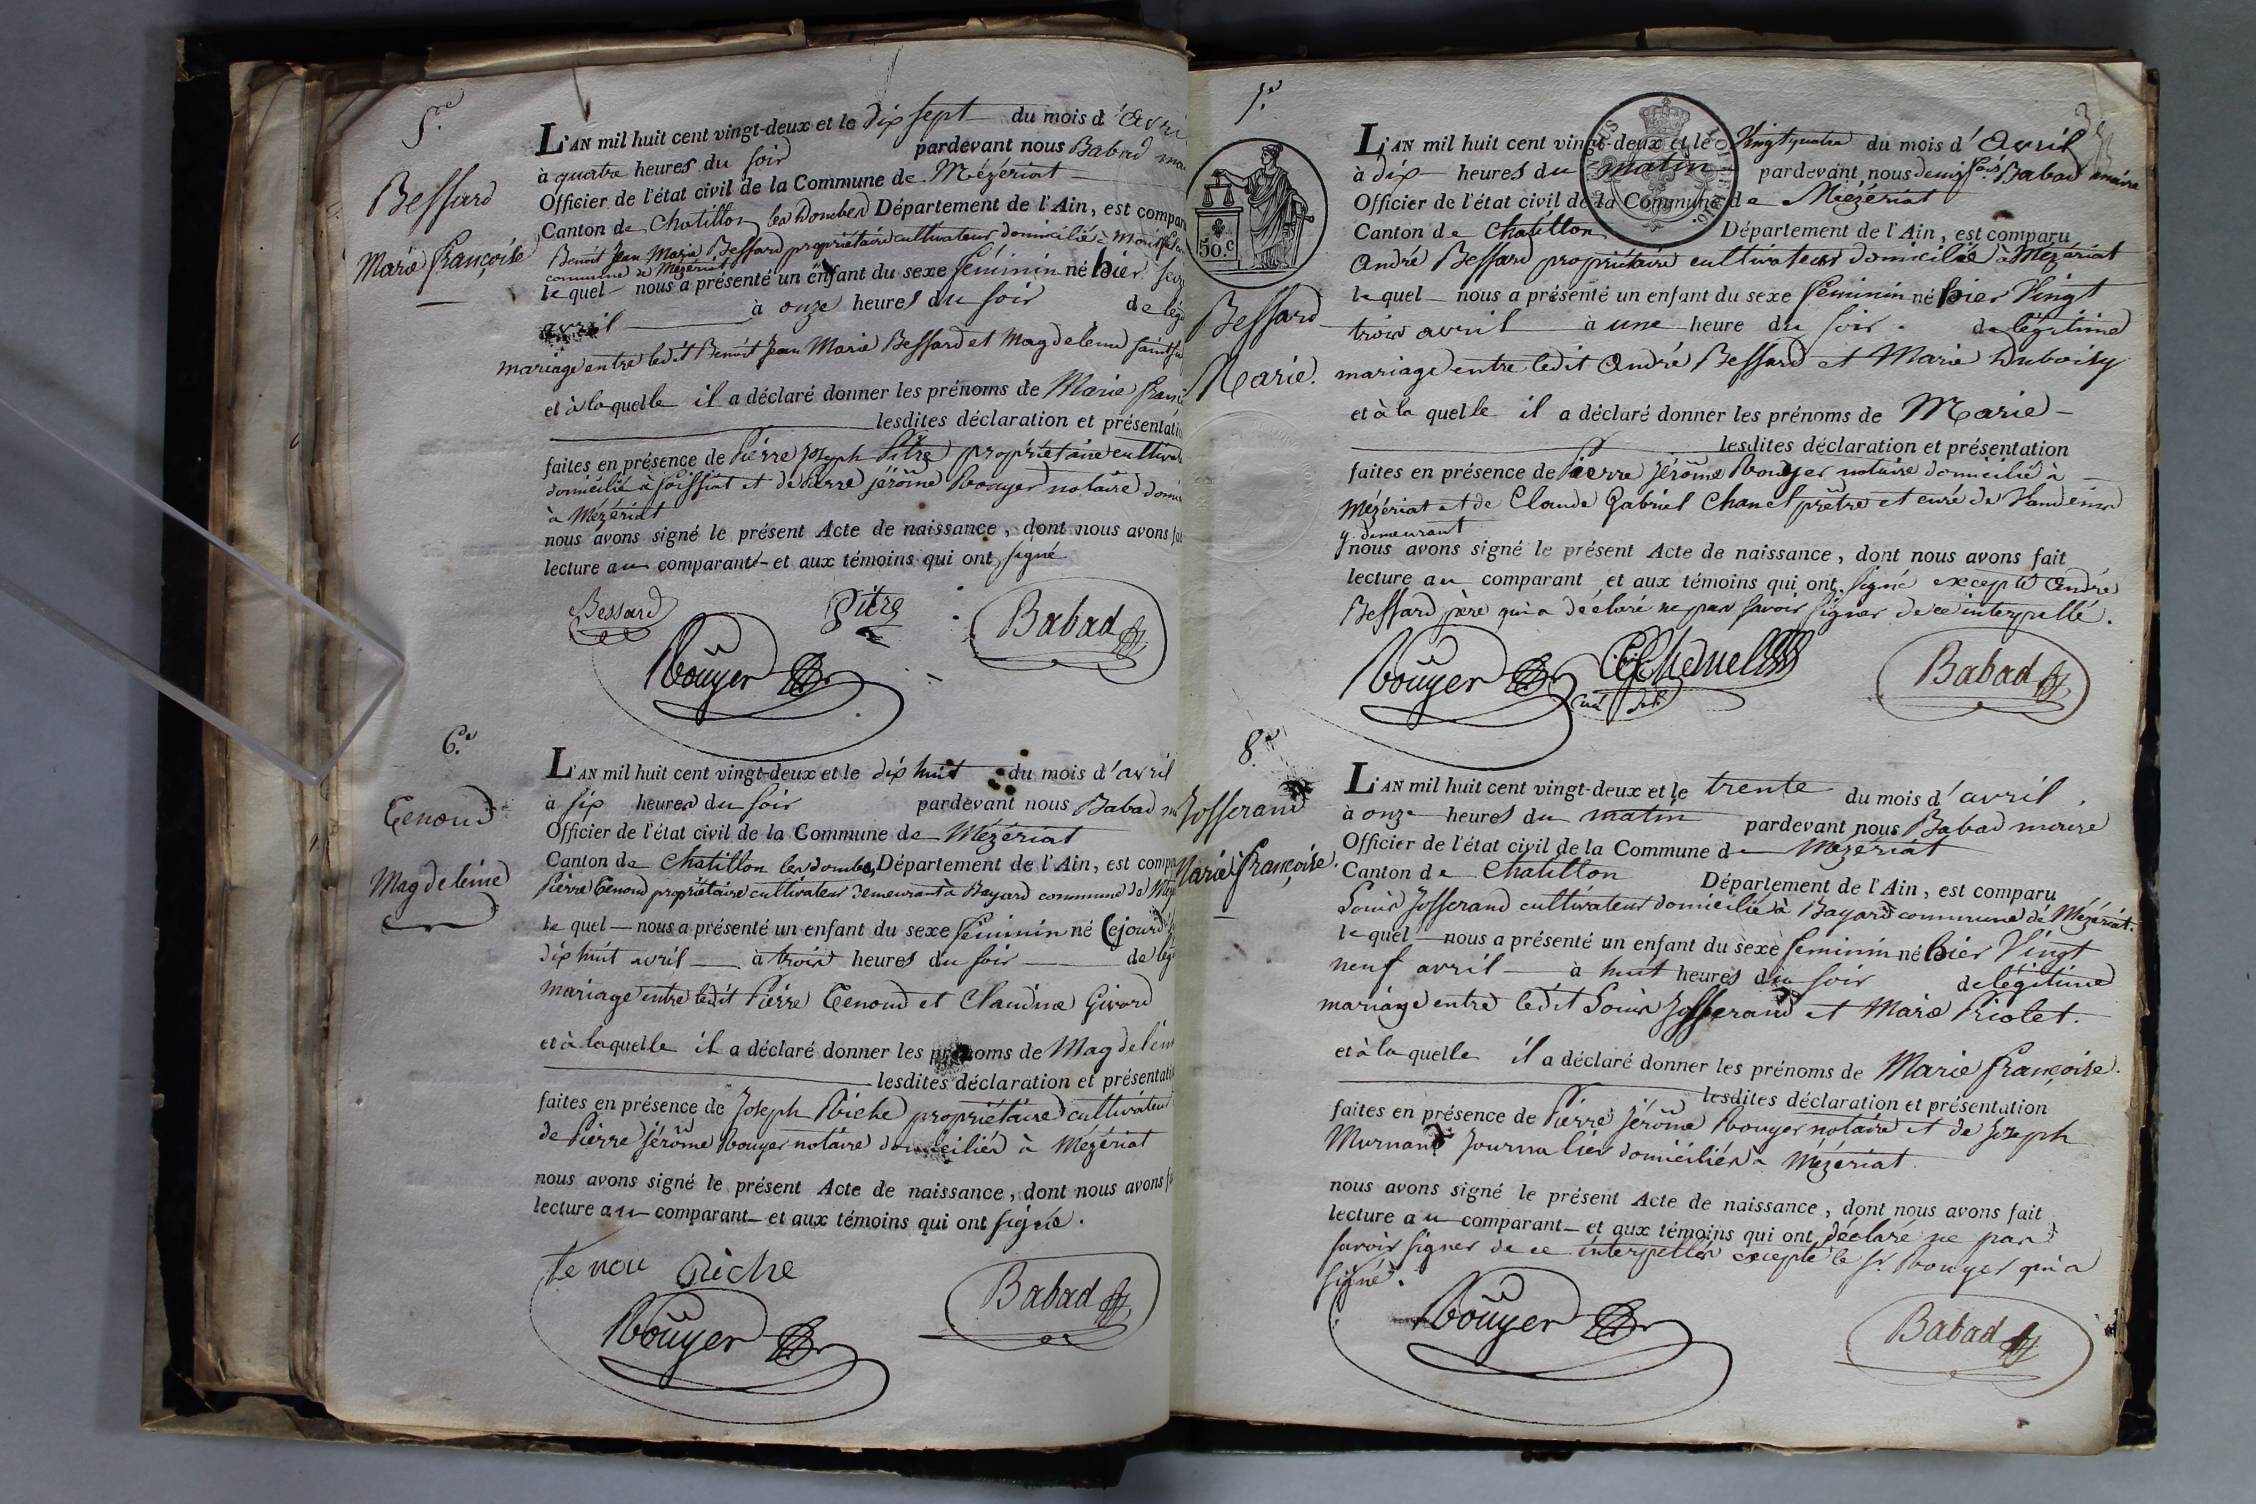 5.e
Bessard
Marie françoise
L'AN mil huit cent vingt-deux et le dix sept du mois d'avri
à quatre heures du soir pardevant nous Babad mai
Officier de l'état civil de la Commune de Mézériat
Canton de Chatillon les Dombes Département de l'Ain, est compar
Benoit Jean Marie Bessard propriétaire cultivateur domicilié à
commune de Mézériat
lequel nous a présenté un enfant du sexe féminin né hier
avril à onze heures du soir de lég
mariage entre ledit Benoit Jean Marie Bessard et Magdeleine
et à laquelle il a déclaré donner les prénoms de Marie franç
lesdites déclaration et présentatio
faites en présence de Pierre Joseph Pitre propriétaire cultivat
domicilié à foissiat et de Pierre jérôme Bouyer notaire domi
à Mézériat
nous avons signé le présent Acte de naissance, dont nous avons fai
lecture au comparant et aux témoins qui ont signé
Bessard Pitre Babad
Bouyer
6.e
Tenoud
Magdeleine
L'AN mil huit cent vingt-deux et le dix huit du mois d'avril
à six heures du soir pardevant nous Babad m
Officier de l'état civil de la Commune de Mézériat
Canton de Chatillon les dombes Département de l'Ain, est compa
Pierre Tenoud propriétaire cultivateur demeurant à Bayard commune de Méz
lequel nous a présenté un enfant du sexe féminin né cejourd
dix huit avril à trois heures du soir de lég
mariage entre ledit Pierre Tenoud et Claudine Givord
et à laquelle il a déclaré donner les prénoms de Magdelein
lesdites déclaration et présentatio
faites en présence de Joseph Riche propriétaire cultivateur
de Pierre jérôme Bouyer notaire domiciliés à Mézériat
nous avons signé le présent Acte de naissance, dont nous avons f
lecture au comparant et aux témoins qui ont signé.
Tenou Riche Babad
Bouyer
7.e
50.c
Bessard
Marie.
L'AN mil huit cent vingt-deux et le Vingtquatre du mois d'Avril
à dix heures du matin pardevant nous denis fois Babad maire
Officier de l'état civil de la Commune de Mézériat
Canton de Chatillon Département de l'Ain, est comparu
André Bessard propriétaire cultivateur domicilié à Mézériat
lequel nous a présenté un enfant du sexe féminin né hier Vingt
trois avril à une heure du soir. de légitime
mariage entre ledit André Bessard et Marie Duboisy
et à laquelle il a déclaré donner les prénoms de Marie
lesdites déclaration et présentation
faites en présence de Pierre jérôme Bouyer notaire domicilié à
Mézériat et de Claude Gabriel Chanel prêtre et curé de Vandeins
y demeurant
nous avons signé le présent Acte de naissance, dont nous avons fait
lecture au comparant et aux témoins qui ont signé excepté André
Bessard père qui a déclaré ne pas savoir signer de ce interpellé.
Bouyer Babad
8.e
Josserand
Marie françoise.
L'AN mil huit cent vingt-deux et le trente du mois d'avril.
à onze heures du matin pardevant nous Babad maire
Officier de l'état civil de la Commune de Mézériat
Canton de Chatillon Département de l'Ain, est comparu
Louis Josserand cultivateur domicilié à Bayard commune de Mézériat.
lequel nous a présenté un enfant du sexe féminin né hier Vingt
neuf avril à huit heures du soir de légitime
mariage entre ledit Louis Josserand et Marie Priolet.
et à laquelle il a déclaré donner les prénoms de Marie françoise.
lesdites déclaration et présentation
faites en présence de Pierre jérôme Bouyer notaire et de Joseph
Murnand Journalier domiciliés à Mézériat.
nous avons signé le présent Acte de naissance, dont nous avons fait
lecture au comparant et aux témoins qui ont déclaré ne pas
savoir signer de ce interpellés excepté le sr. Bouyer qui a
signé.
Bouyer Babad